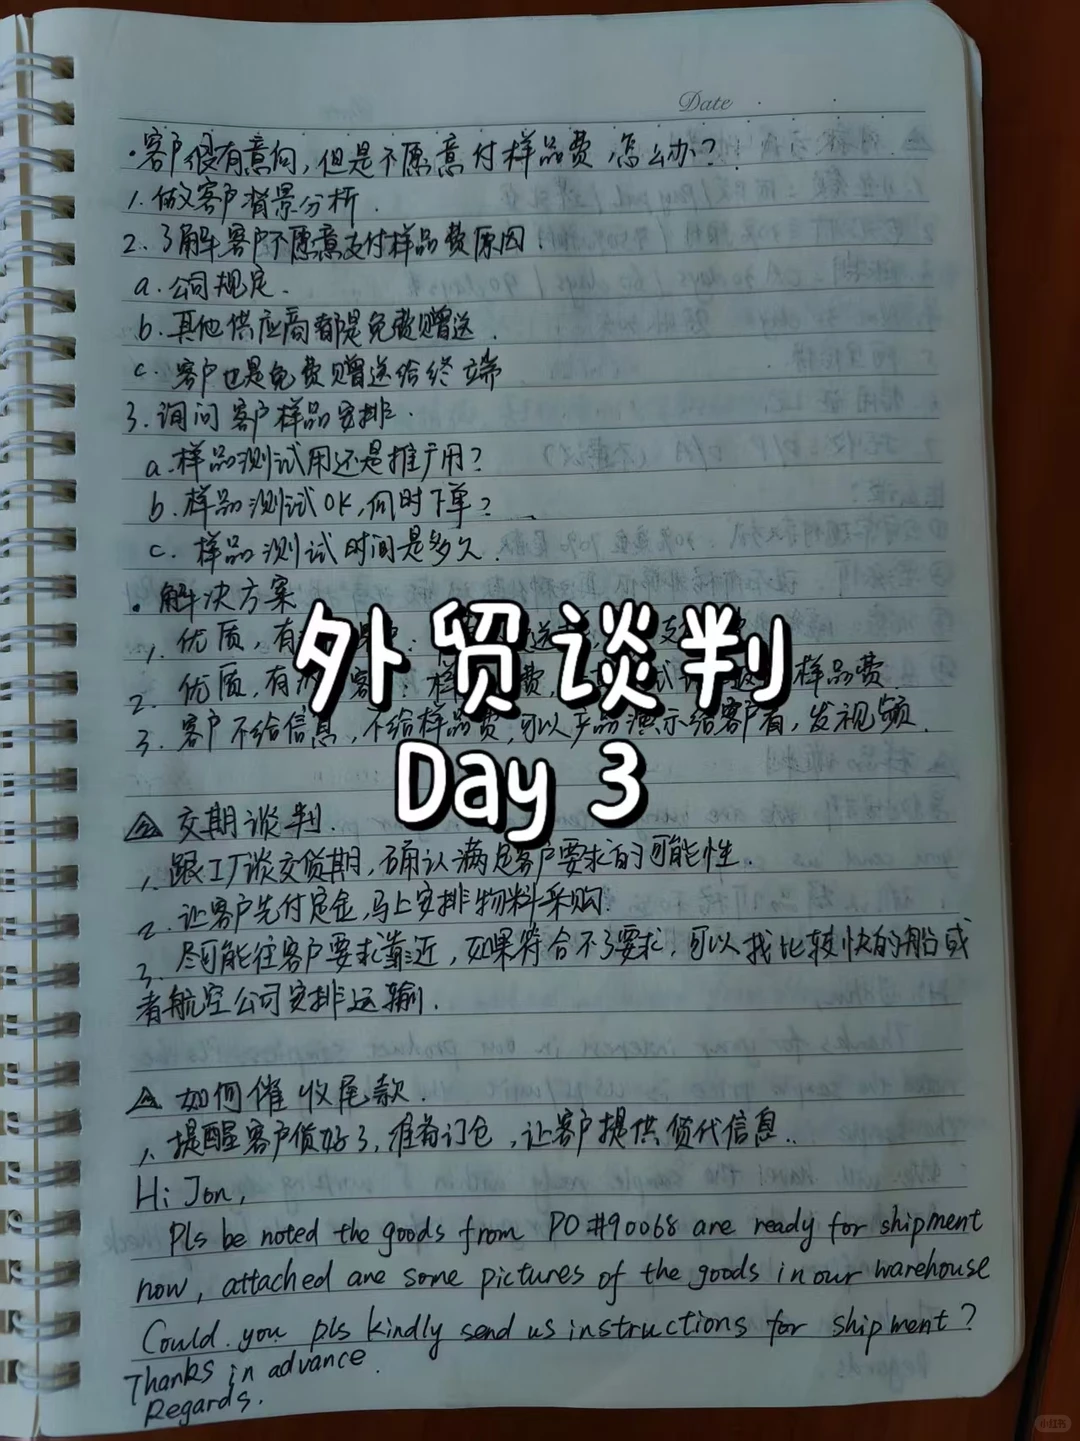 Date
·客户很有意向，但是不愿意付样品费，怎么办？
1.做客户背景分析.
2.了解客户不愿意支付样品费原因.
a.公司规定.
b.其他供应商都是免费赠送.
c.客户也是免费赠送给终端
3.询问客户样品安排.
a.样品测试用还是推广用？
b.样品测试OK,何时下单？
c.样品测试时间是多久.
·解决方案
1.优质，有
2.优质，有 样品费
3.客户不给信息，不给样品费,可以产品演示给客户看，发视频.
外贸谈判
Day 3
交期谈判.
1.跟工厂谈交货期，确认满足客户要求的可能性.
2.让客户先付定金,马上安排物料采购.
3.尽可能往客户要求靠近，如果符合不了要求，可以找比较快的船或
者航空公司安排运输.
如何催收尾款.
1.提醒客户货好了，准备订仓，让客户提供货代信息..
Hi Jon,
Pls be noted the goods from PO#90068 are ready for shipment
now, attached are some pictures of the goods in our warehouse
Could you pls kindly send us instructions for shipment?
Thanks in advance.
Regards.
小红书